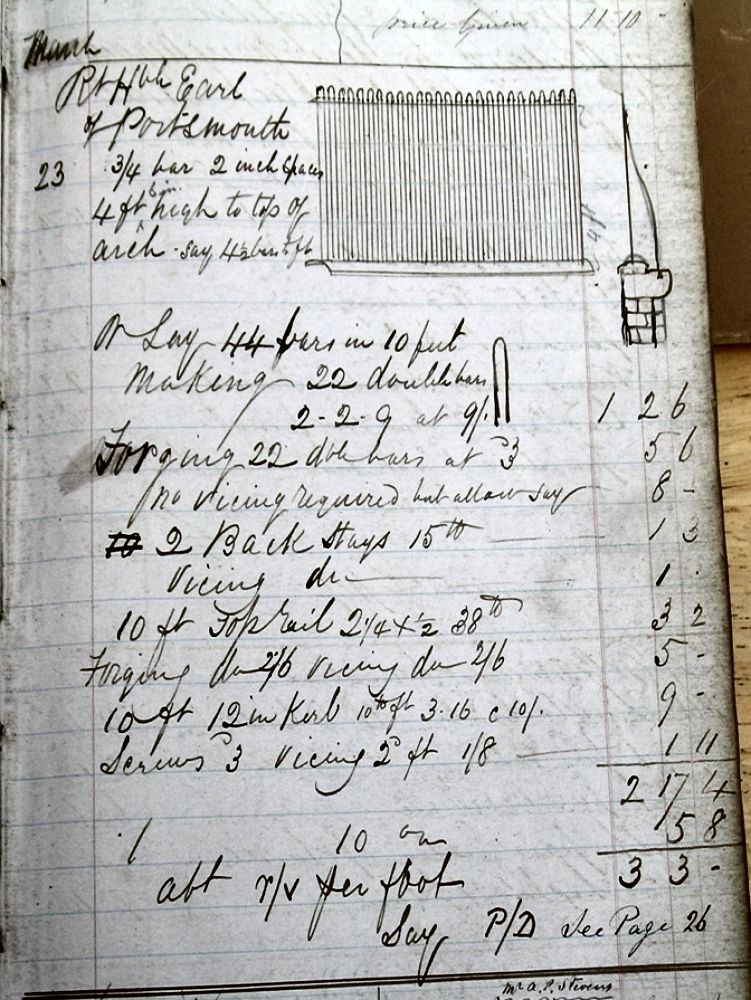 price Given 11 10 -
March
Rt Hble Earl
of Portsmouth
23 3/4 bar 2 inch spaces
4 ft 6 in high to top of
arch - say 4½ bars to ft
Or Say 44 bars in 10 feet
Making 22 double bars
2-2-9 at 9/. 1 2 6
Forging 22 dble bars at 3 5 6
No vicing required but allow say 8 -
2 Back Stays 15 lb 1 3
Vicing do 1 -
10 ft Top rail 2¼ x ½ 38 lb 3 2
Forging do 2/6 Vicing do 2/6 5 -
10 ft 12 in Kerb 10 lb ft 3.16 c 10/. 9 -
Screws 3 Vicing 2 ft 1/8 1 11
2 17 4
1 10 on 5 8
3 3 -
abt r/v per foot
Say P/D See Page 26
Mr A. P. Stevens